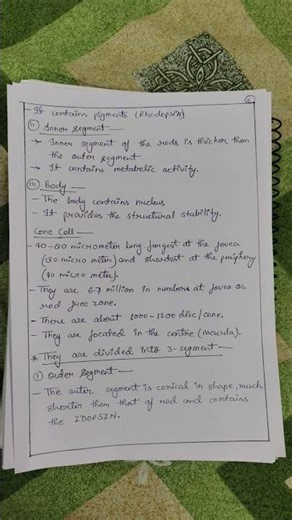 - It contains pigments (Rhodopsin)
(ii) Inner Segment —
→ Inner segment of the rods is thicker than
the outer segment
→ It contains metabolic activity.
(iii) Body —
- The body contains nucleus
- It provides the structural stability.
Cone Cell —
- 40-80 micrometer long largest at the fovea
(80 micro meter) and shortest at the periphery
(40 micro meter).
- They are 6-7 million in numbers at fovea or
rod free zone.
- There are about 1000-1200 disc/cone.
- They are located in the centre (macula).
* They are divided into 3-segment —
(i) Outer Segment —
- The outer segment is conical in shape, much
shorter them that of rod and contains
the IDOPSIN.